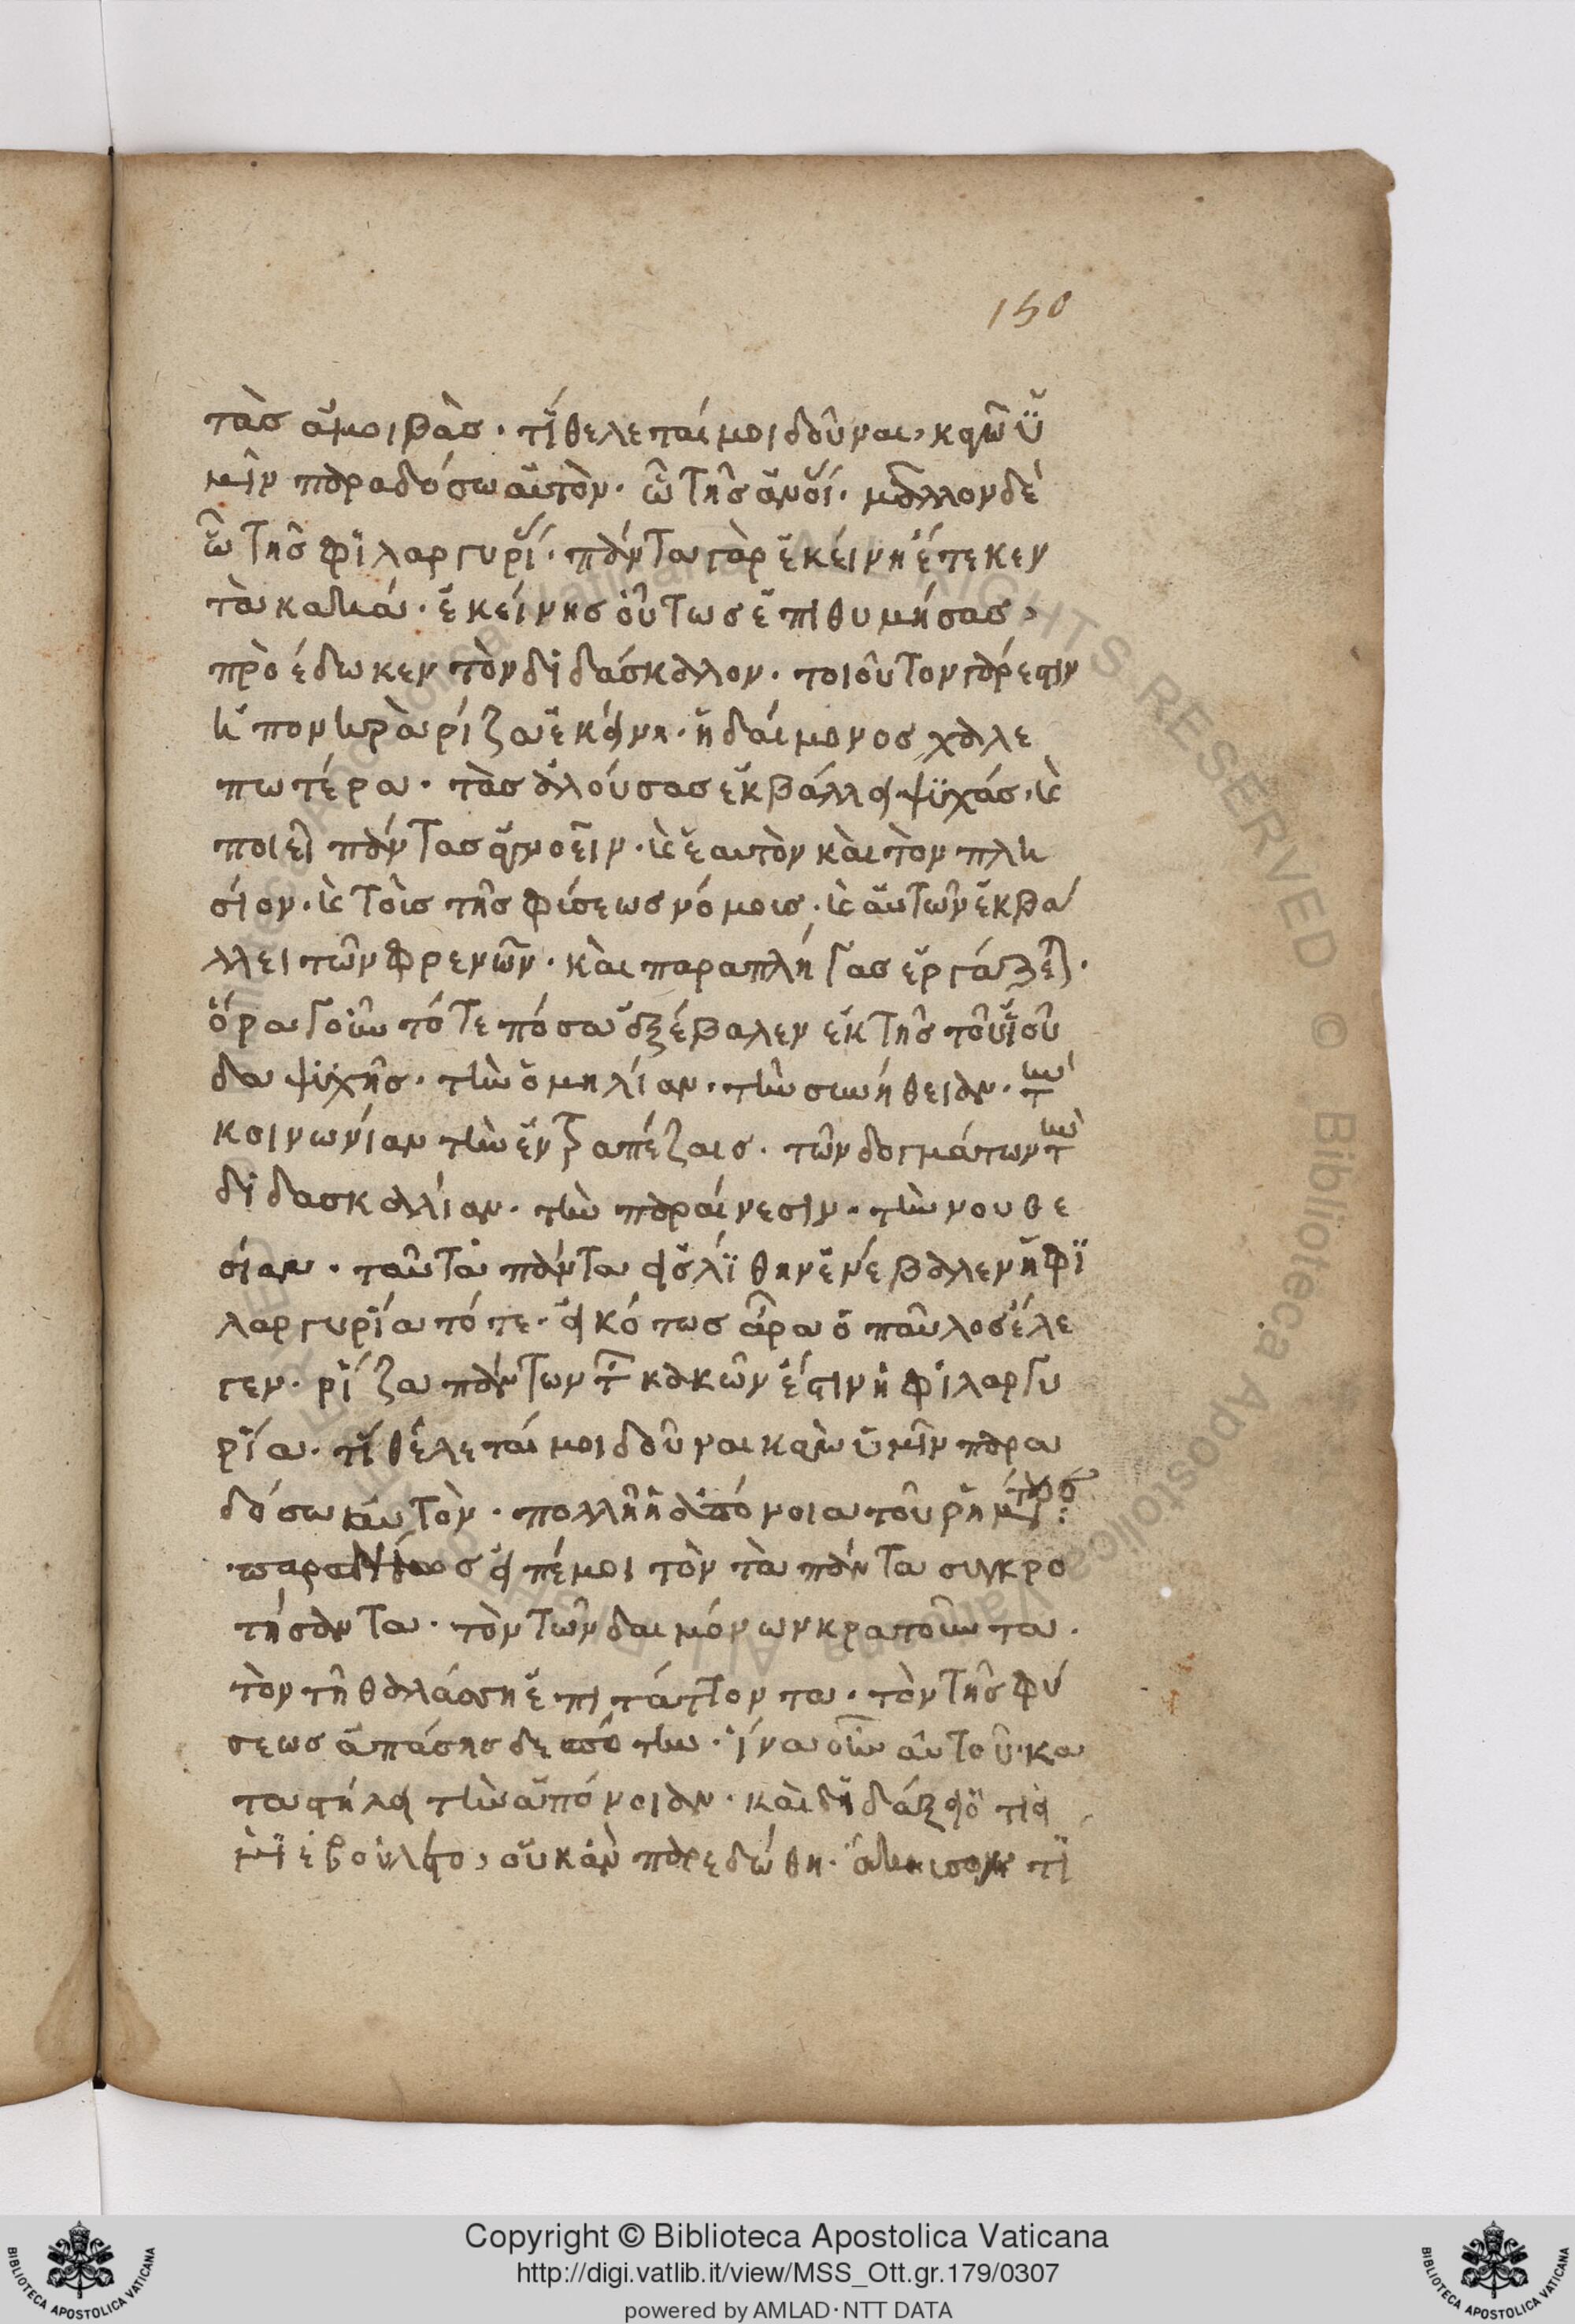 150
τὰσ ἀμοιβὰσ· τί θέλεταί μοι δοῦναι, καγὼ ὑ
μῖν παραδόσω αὐτὸν· ὢ τῆσ ἀνοί· μᾶλλον δὲ
ὢ τῆσ φιλαργυρί· πάντα γὰρ ἐκείνη έτεκεν
τὰ κακά· ἐκείνησ οὗτωσ ἐπιθυμήσασ,
πρὸέδωκεν τὸν διδάσκαλον· τοιοῦτον γάρ εστιν
ἡ πονηρὰ ρίζα ἐκείνη· ἢ δαίμονοσ χαλε
πωτέρα· τὰσ ἀλούσασ ἐκβάλλει ψυχάσ· καὶ
ποιεῖ πάντασ ἀγνοεῖν· καὶ ἑαυτὸν καὶ τὸν πλη
σίον· καὶ τοὶσ τῆσ φύσεωσ νόμοισ· καὶ αὐτῶν ἐκβά
λλει τῶν φρενῶν· καὶ παραπλήγασ ἐργάζεται·
ὅρα γοῦν τότε πόσα ἐξέβαλεν ἐκ τῆσ τοῦ ἰού
δα ψυχῆσ· τὴν ὁμηλίαν· τὴν συνήθειαν· τὴν
κοινωνίαν τὴν ἐν τραπέζαισ· τῶν δογμάτων τὴν
διδασκαλλίαν· τὴν παραίνεσιν· τὴν νουθε
σίαν· ταῦτα πάντα εἰσ λίθην ἐνέβαλεν ἡ φι
λαργυρία τότε· εἰκότωσ ἆρα ὁ παῦλοσ έλε
γεν· ρίζα πάντων τῶν κακῶν ἐστιν ἡ φιλαργυ
ρία· τί θέλεταί μοι δοῦναι καγὼ ὑμῖν παρα
δόσω αὐτὸν· πολλὴ ἡ ἀπόνοια τοῦ ρήματοσ:
σ εἰπέ μοι τὸν τὰ πάντα συγκρο
τήσαντα· τὸν τῶν δαιμόνων κρατοῦντα·
τὸν τῆ θαλάσση ἐπιτάττοντα· τὸν τῆσ φύ
σεωσ ἁπάσησ δεσπότην· ἵνα οὖν αὐτοῦ κα
ταστήλει τὴν ἀπόνοιαν· καὶ διδάξει ὅτι εἰ
μὴ ἐβούλετο, οὐκ ἂν παρεδώθη· ἄκουσον τί
Copyright © Biblioteca Apostolica Vaticana
http://digi.vatlib.it/view/MSS_Ott.gr.179/0307
powered by AMLAD·NTT DATA